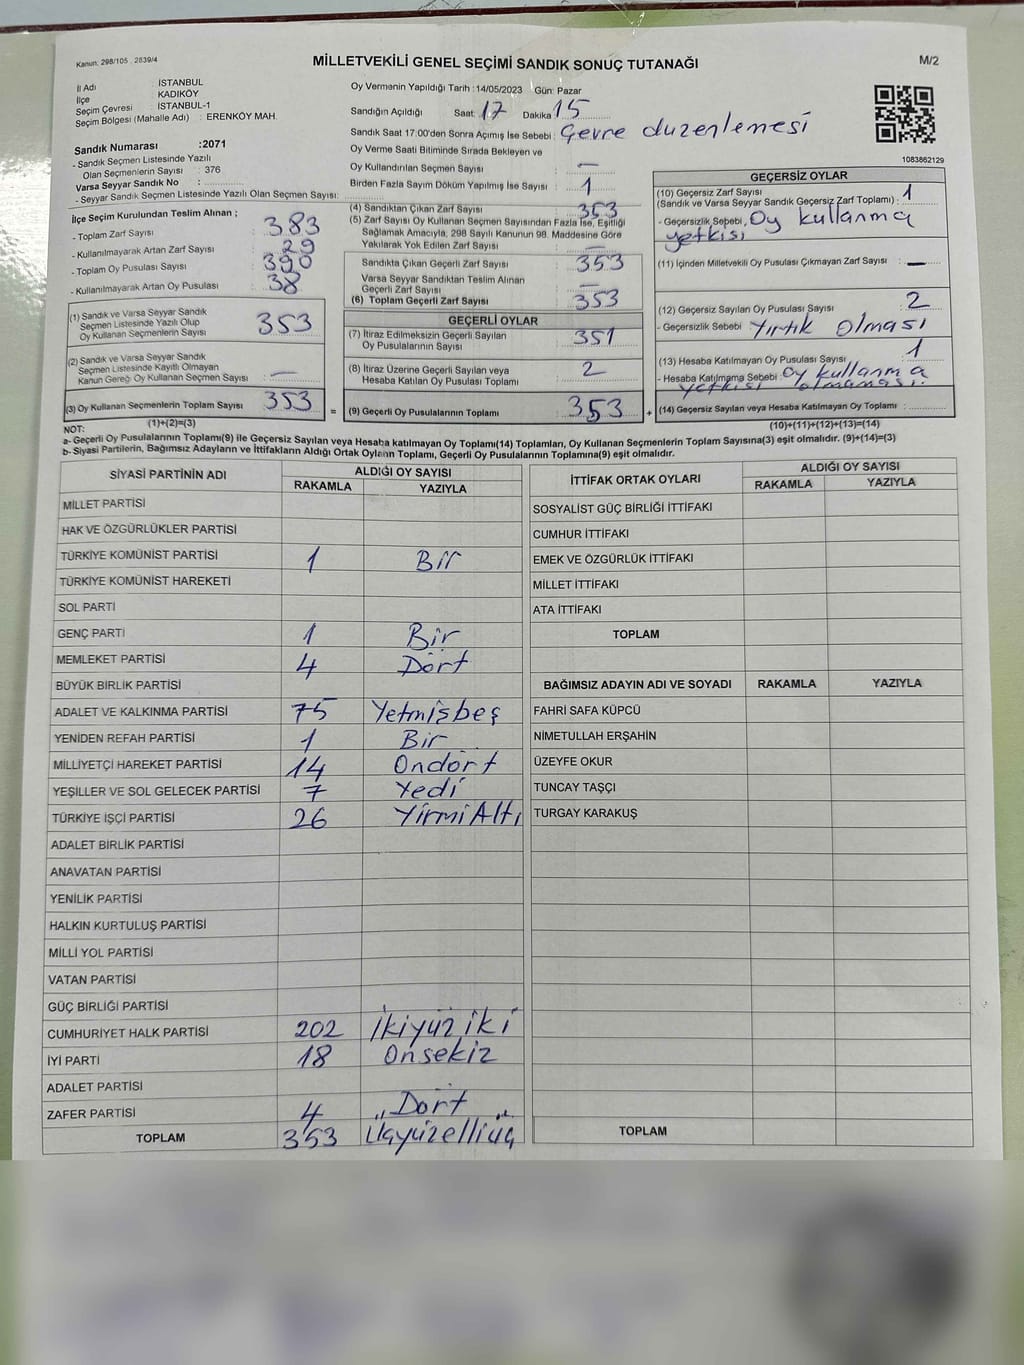 Kanun. 298/105 . 2839/4
MİLLETVEKİLİ GENEL SEÇİMİ SANDIK SONUÇ TUTANAĞI
M/2
İl Adı : İSTANBUL
İlçe : KADIKÖY
Seçim Çevresi : İSTANBUL-1
Seçim Bölgesi (Mahalle Adı) : ERENKÖY MAH.
Oy Vermenin Yapıldığı Tarih : 14/05/2023 Gün: Pazar
Sandığın Açıldığı Saat: 17 Dakika 15
Sandık Saat 17:00'den Sonra Açımış İse Sebebi : Çevre düzenlemesi
Oy Verme Saati Bitiminde Sırada Bekleyen ve
Oy Kullandırılan Seçmen Sayısı : —
Birden Fazla Sayım Döküm Yapılmış İse Sayısı : 1
1083862129
Sandık Numarası :2071
- Sandık Seçmen Listesinde Yazılı
Olan Seçmenlerin Sayısı : 376
Varsa Seyyar Sandık No :
- Seyyar Sandık Seçmen Listesinde Yazılı Olan Seçmen Sayısı:
İlçe Seçim Kurulundan Teslim Alınan ;
- Toplam Zarf Sayısı : 383
- Kullanılmayarak Artan Zarf Sayısı : 29
- Toplam Oy Pusulası Sayısı : 390
- Kullanılmayarak Artan Oy Pusulası : 38
(1) Sandık ve Varsa Seyyar Sandık
Seçmen Listesinde Yazılı Olup
Oy Kullanan Seçmenlerin Sayısı : 353
(2) Sandık ve Varsa Seyyar Sandık
Seçmen Listesinde Kayıtlı Olmayan
Kanun Gereği Oy Kullanan Seçmen Sayısı : —
(3) Oy Kullanan Seçmenlerin Toplam Sayısı : 353
(1)+(2)=(3)
(4) Sandıktan Çıkan Zarf Sayısı : 353
(5) Zarf Sayısı Oy Kullanan Seçmen Sayısından Fazla İse, Eşitliği
Sağlamak Amacıyla, 298 Sayılı Kanunun 98. Maddesine Göre
Yakılarak Yok Edilen Zarf Sayısı : —
Sandıkta Çıkan Geçerli Zarf Sayısı : 353
Varsa Seyyar Sandıktan Teslim Alınan
Geçerli Zarf Sayısı : —
(6) Toplam Geçerli Zarf Sayısı : 353
GEÇERLİ OYLAR
(7) İtiraz Edilmeksizin Geçerli Sayılan
Oy Pusulalarının Sayısı : 351
(8) İtiraz Üzerine Geçerli Sayılan veya
Hesaba Katılan Oy Pusulası Toplamı : 2
= (9) Geçerli Oy Pusulalarının Toplamı : 353 +
GEÇERSİZ OYLAR
(10) Geçersiz Zarf Sayısı
(Sandık ve Varsa Seyyar Sandık Geçersiz Zarf Toplamı) : 1
- Geçersizlik Sebebi : Oy kullanma
yetkisi
(11) İçinden Milletvekili Oy Pusulası Çıkmayan Zarf Sayısı : —
(12) Geçersiz Sayılan Oy Pusulası Sayısı : 2
- Geçersizlik Sebebi : Yırtık olması
(13) Hesaba Katılmayan Oy Pusulası Sayısı : 1
- Hesaba Katılmama Sebebi : Oy kullanma
yetkisi olmaması.
(14) Geçersiz Sayılan veya Hesaba Katılmayan Oy Toplamı :
(10)+(11)+(12)+(13)=(14)
NOT:
a- Geçerli Oy Pusulalarının Toplamı(9) ile Geçersiz Sayılan veya Hesaba katılmayan Oy Toplamı(14) Toplamları, Oy Kullanan Seçmenlerin Toplam Sayısına(3) eşit olmalıdır. (9)+(14)=(3)
b- Siyasi Partilerin, Bağımsız Adayların ve İttifakların Aldığı Ortak Oyların Toplamı, Geçerli Oy Pusulalarının Toplamına(9) eşit olmalıdır.
SİYASİ PARTİNİN ADI
ALDIĞI OY SAYISI
RAKAMLA YAZIYLA
MİLLET PARTİSİ
HAK VE ÖZGÜRLÜKLER PARTİSİ
TÜRKİYE KOMÜNİST PARTİSİ 1 Bir
TÜRKİYE KOMÜNİST HAREKETİ
SOL PARTİ
GENÇ PARTİ 1 Bir
MEMLEKET PARTİSİ 4 Dört
BÜYÜK BİRLİK PARTİSİ
ADALET VE KALKINMA PARTİSİ 75 Yetmişbeş
YENİDEN REFAH PARTİSİ 1 Bir
MİLLİYETÇİ HAREKET PARTİSİ 14 Ondört
YEŞİLLER VE SOL GELECEK PARTİSİ 7 Yedi
TÜRKİYE İŞÇİ PARTİSİ 26 YirmiAltı
ADALET BİRLİK PARTİSİ
ANAVATAN PARTİSİ
YENİLİK PARTİSİ
HALKIN KURTULUŞ PARTİSİ
MİLLİ YOL PARTİSİ
VATAN PARTİSİ
GÜÇ BİRLİĞİ PARTİSİ
CUMHURİYET HALK PARTİSİ 202 İkiyüz iki
İYİ PARTİ 18 Onsekiz
ADALET PARTİSİ
ZAFER PARTİSİ 4 Dört
TOPLAM 353 Üçyüzelliüç
İTTİFAK ORTAK OYLARI
ALDIĞI OY SAYISI
RAKAMLA YAZIYLA
SOSYALİST GÜÇ BİRLİĞİ İTTİFAKI
CUMHUR İTTİFAKI
EMEK VE ÖZGÜRLÜK İTTİFAKI
MİLLET İTTİFAKI
ATA İTTİFAKI
TOPLAM
BAĞIMSIZ ADAYIN ADI VE SOYADI RAKAMLA YAZIYLA
FAHRİ SAFA KÜPCÜ
NİMETULLAH ERŞAHİN
ÜZEYFE OKUR
TUNCAY TAŞÇI
TURGAY KARAKUŞ
TOPLAM